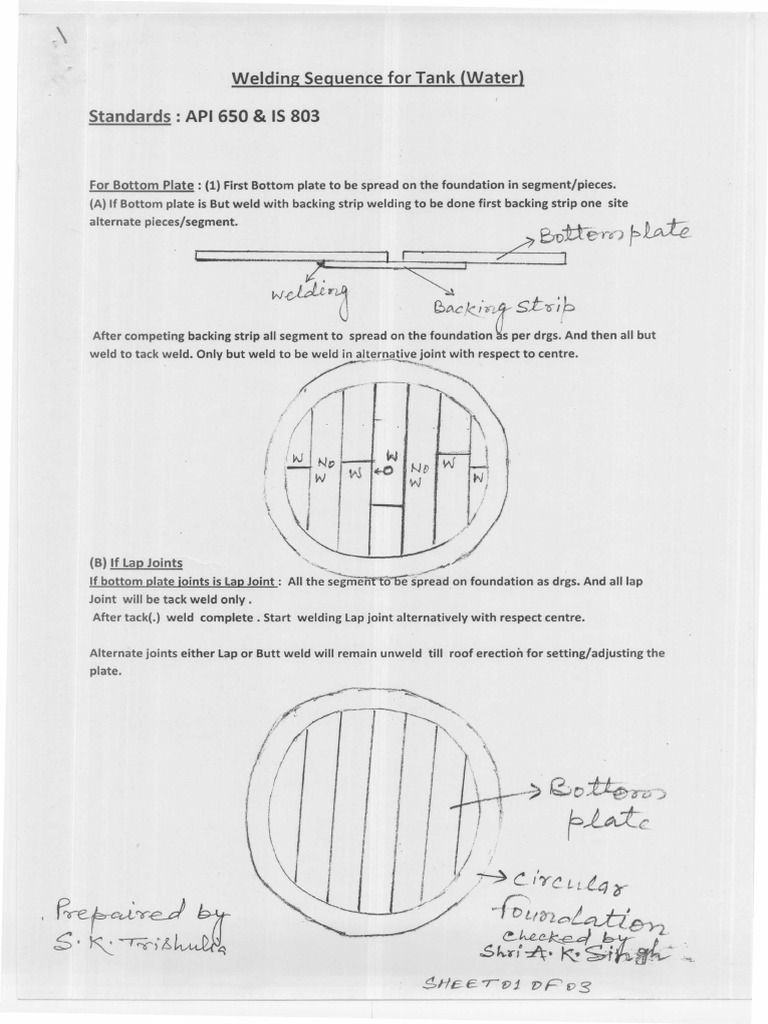 Welding Sequence for Tank (Water)
Standards : API 650 & IS 803
For Bottom Plate : (1) First Bottom plate to be spread on the foundation in segment/pieces.
(A) If Bottom plate is But weld with backing strip welding to be done first backing strip one site
alternate pieces/segment.
Bottom plate
Welding
Backing Strip
After competing backing strip all segment to spread on the foundation as per drgs. And then all but
weld to tack weld. Only but weld to be weld in alternative joint with respect to centre.
W
NO
W
W
W
O
NO
W
W
W
(B) If Lap Joints
If bottom plate joints is Lap Joint : All the segment to be spread on foundation as drgs. And all lap
Joint will be tack weld only .
After tack(.) weld complete . Start welding Lap joint alternatively with respect centre.
Alternate joints either Lap or Butt weld will remain unweld till roof erection for setting/adjusting the
plate.
Bottom
plate
Circular
foundation
Prepaired by
S. K. Trishulia
Checked by
Shri A. K. Singh
SHEET 01 OF 03